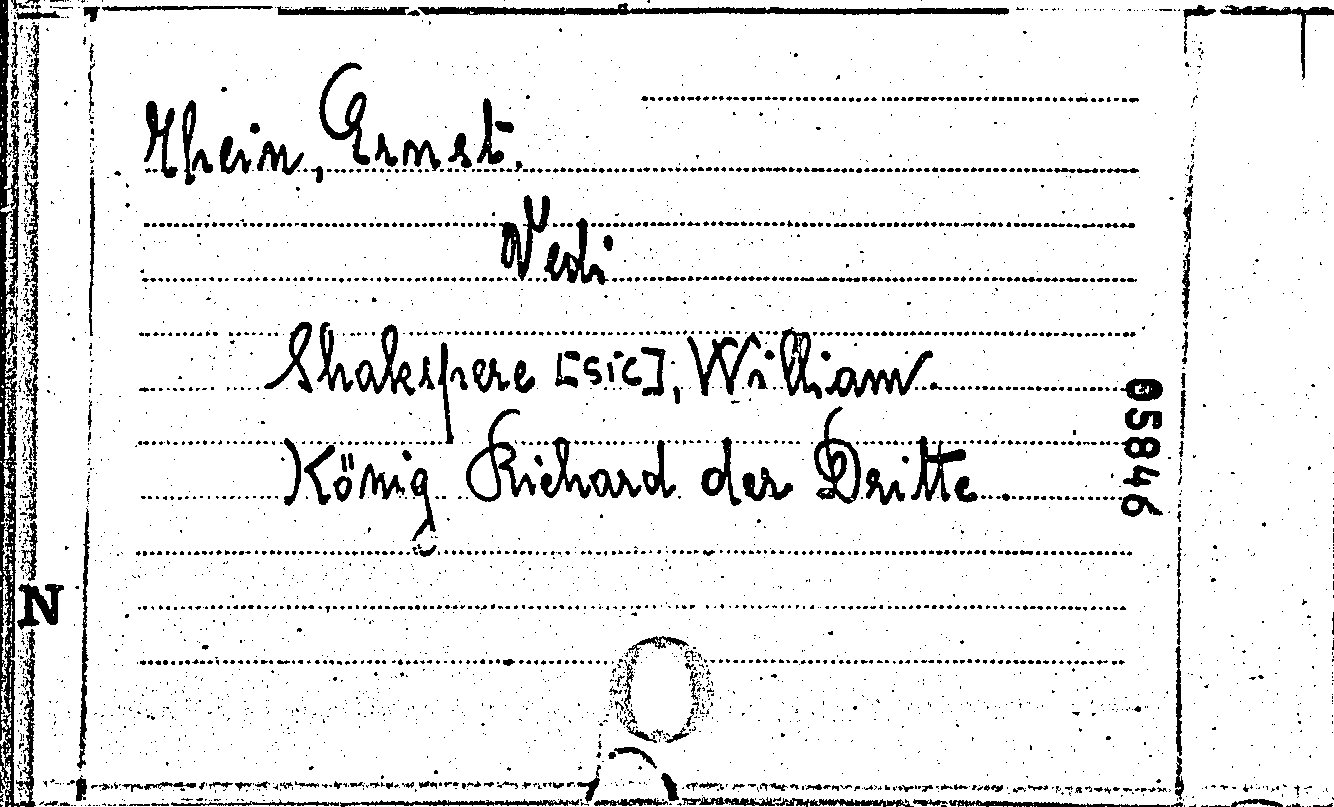 Rhein, Ernst.
Vedi
Shakspere [sic], William.
König Richard der Dritte.
65846
N